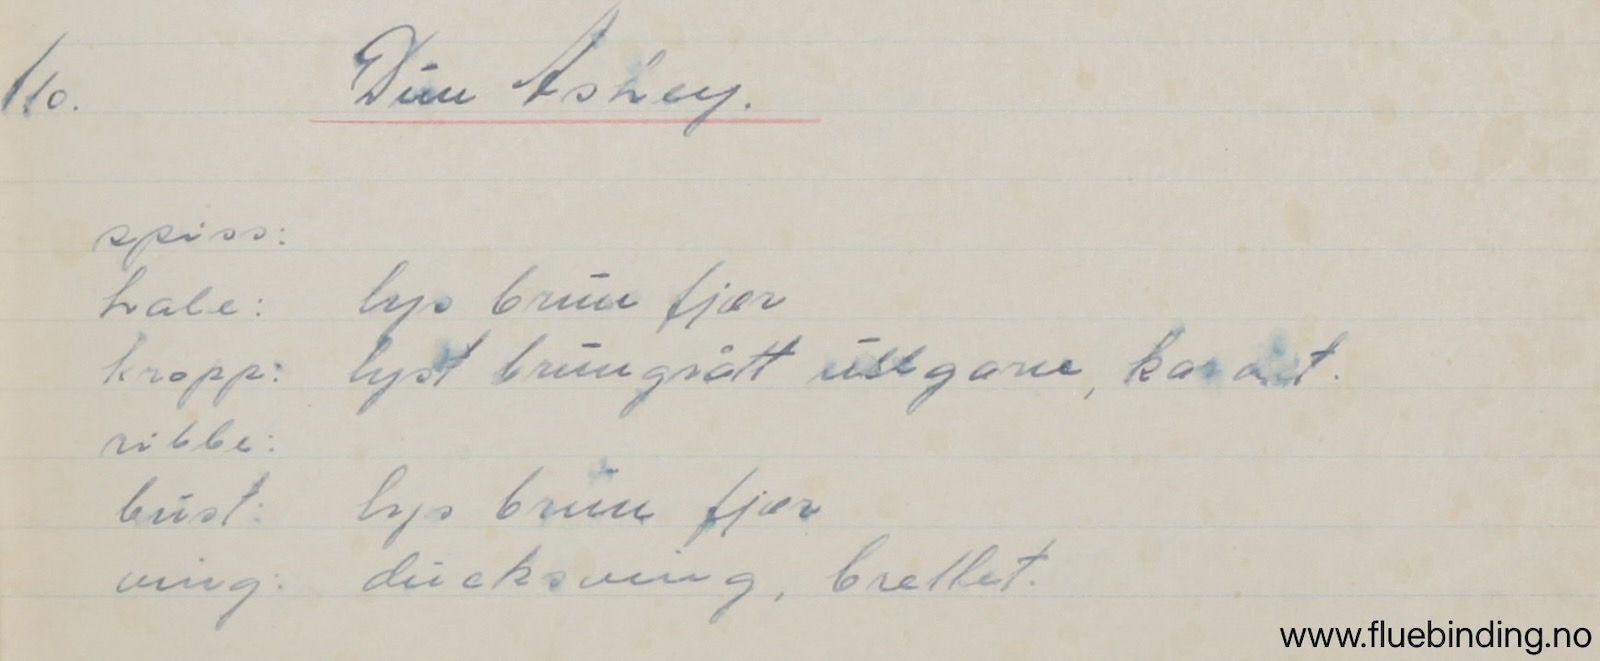 110. Dun Ashey.
spiss:
hale: lys brun fjær
kropp: lyst brungrått ullgarn, kardet.
ribbe:
bust: lys brun fjær
ving: ducksving, brettet.
www.fluebinding.no